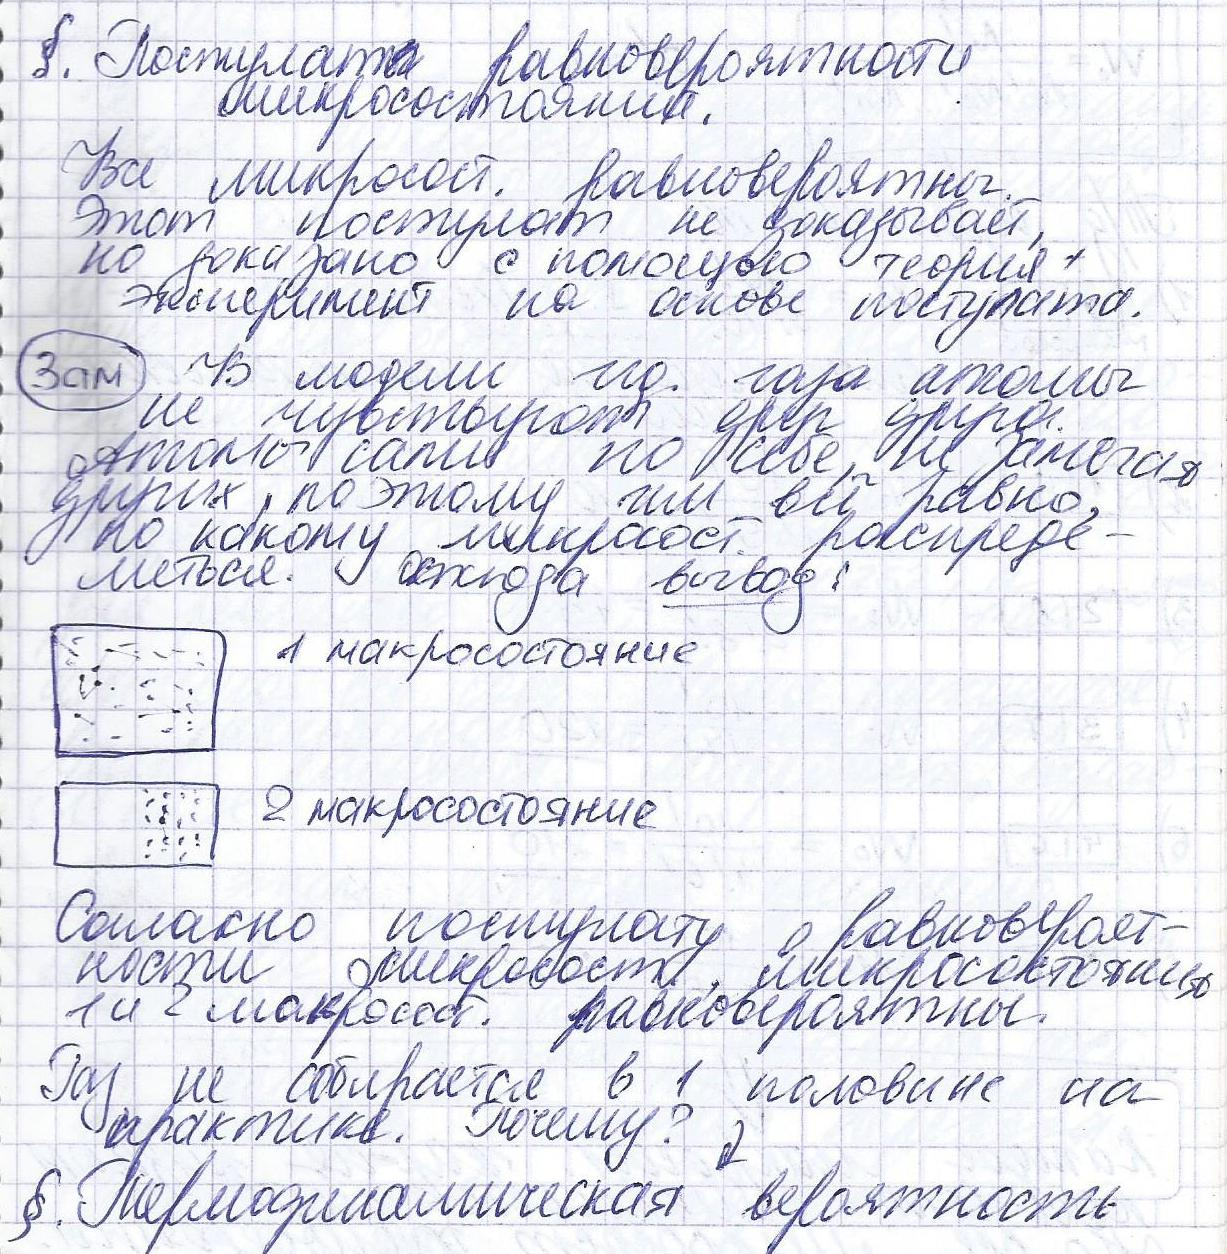 §. Постулат равновероятности
микросостояний.
Все микросост. равновероятны.
Этот постулат не доказывает,
но доказано с помощью теория+
эксперимент на основе постулата.
Зам В модели ид. газа атомы
не чувствуют друг друга.
Атомы сами по себе, не замечая
других, поэтому им всё равно,
по какому микросост. распреде-
литься. Отсюда вывод:
1 макросостояние
2 макросостояние
Согласно постулату о равновероят-
ности микросост., микросостояния
1 и 2 макросост. равновероятны.
Газ не собирается в 1 половине на
практике. Почему?
§. Термодинамическая вероятность